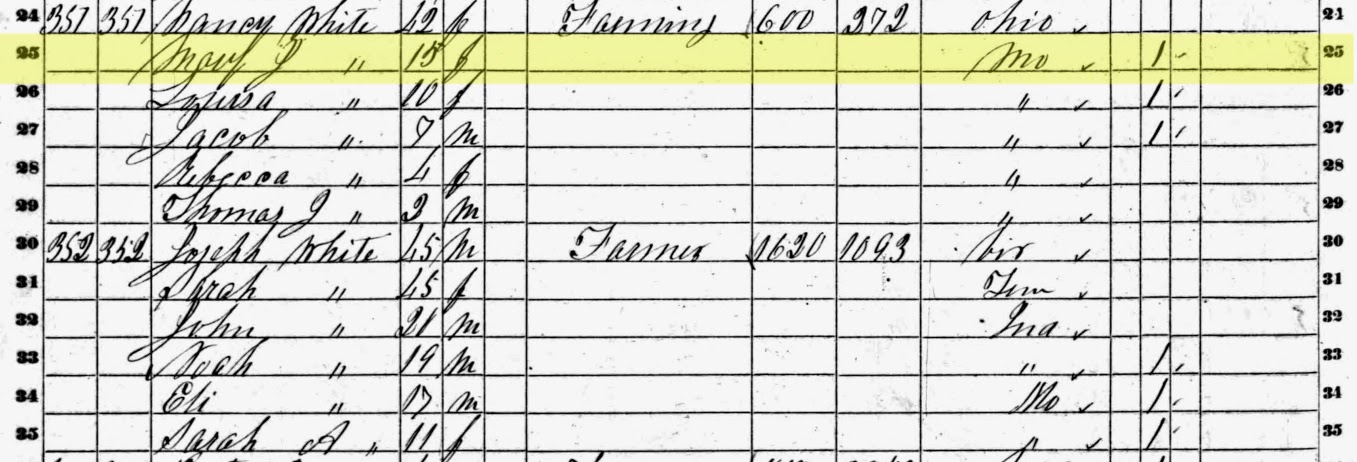 24 351 351 Nancy White 42 f Farming 600 272 Ohio 21
25 Mary J " 15 f Mo 1 25
26 Louisa " 10 f " 1 26
27 Jacob " 7 m " 1 27
28 Rebecca " 4 f " 28
29 Thomas J " 2 m " 29
30 352 352 Joseph White 45 m Farmer 1620 1093 Vir 30
31 Sarah " 45 f Tenn 31
32 John " 21 m Ina 32
33 Noah " 19 m " 1 33
34 Eli " 17 m Mo 1 34
35 Sarah A " 11 f " 1 35